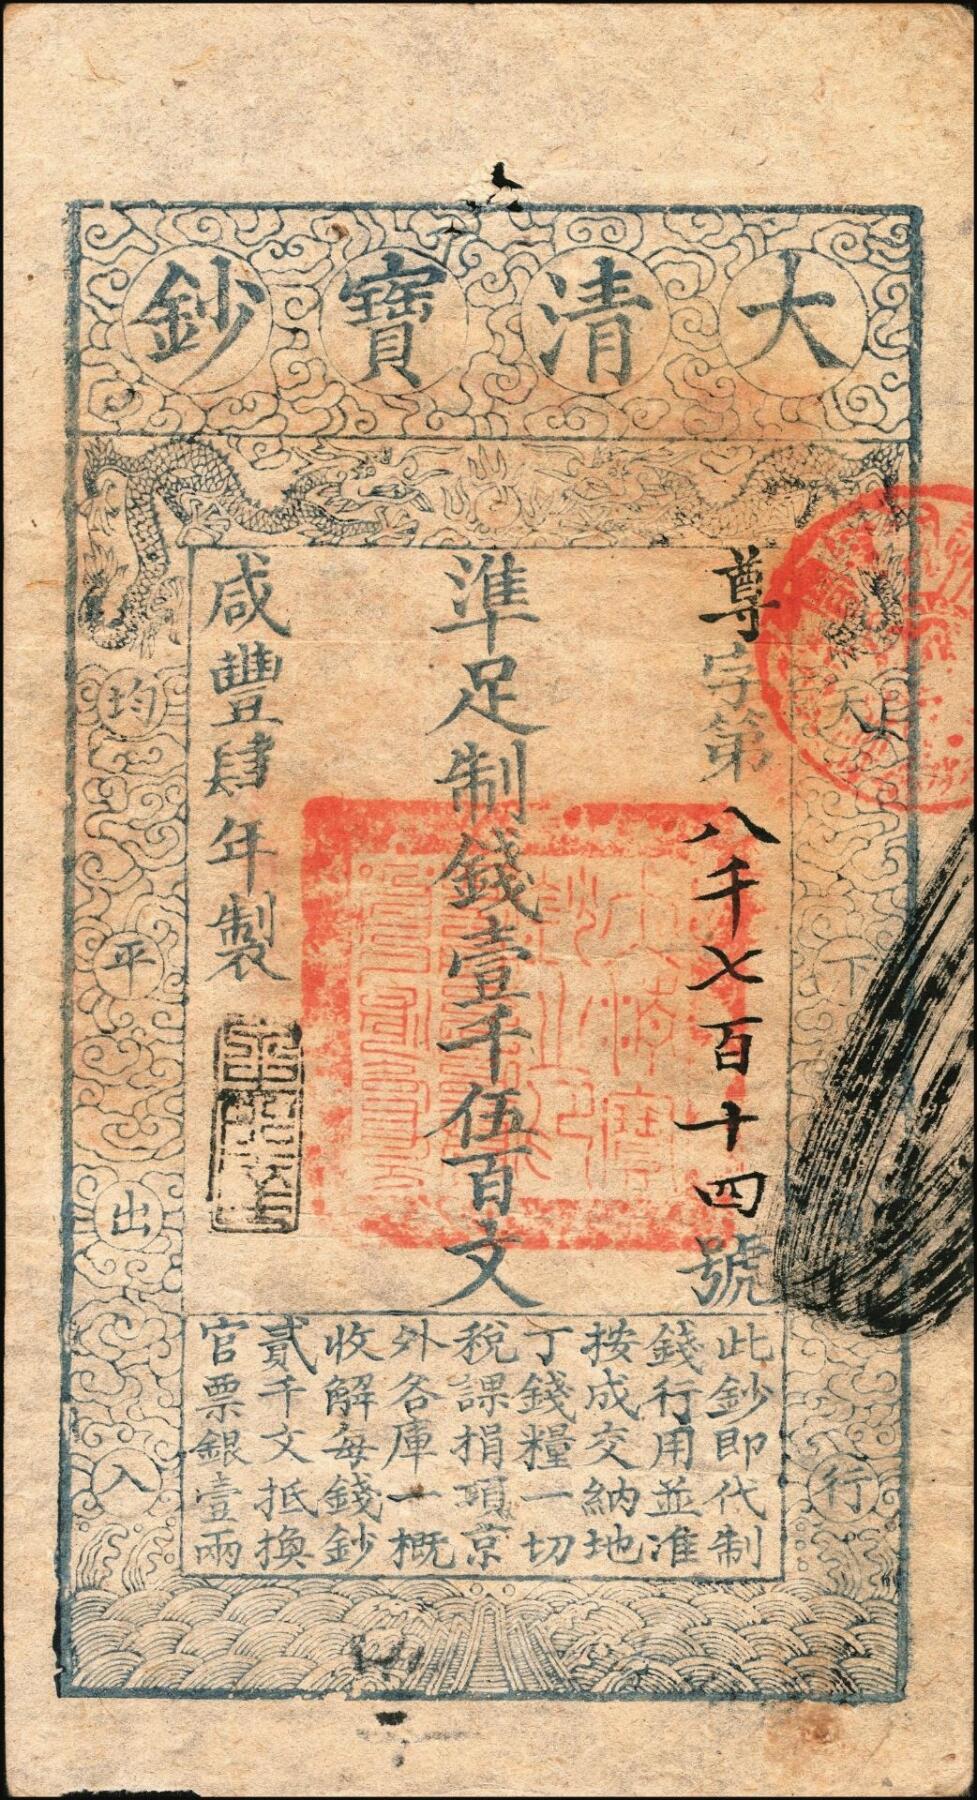 大清寶鈔
天下
行
均平出入
尊字第八千七百十四號
準足制錢壹千伍百文
咸豐肆年製
此鈔即代制
錢行用並准
按成交納地
丁錢糧一切
稅課捐項京
外各庫一概
收解每錢鈔
貳千文抵換
官票銀壹兩